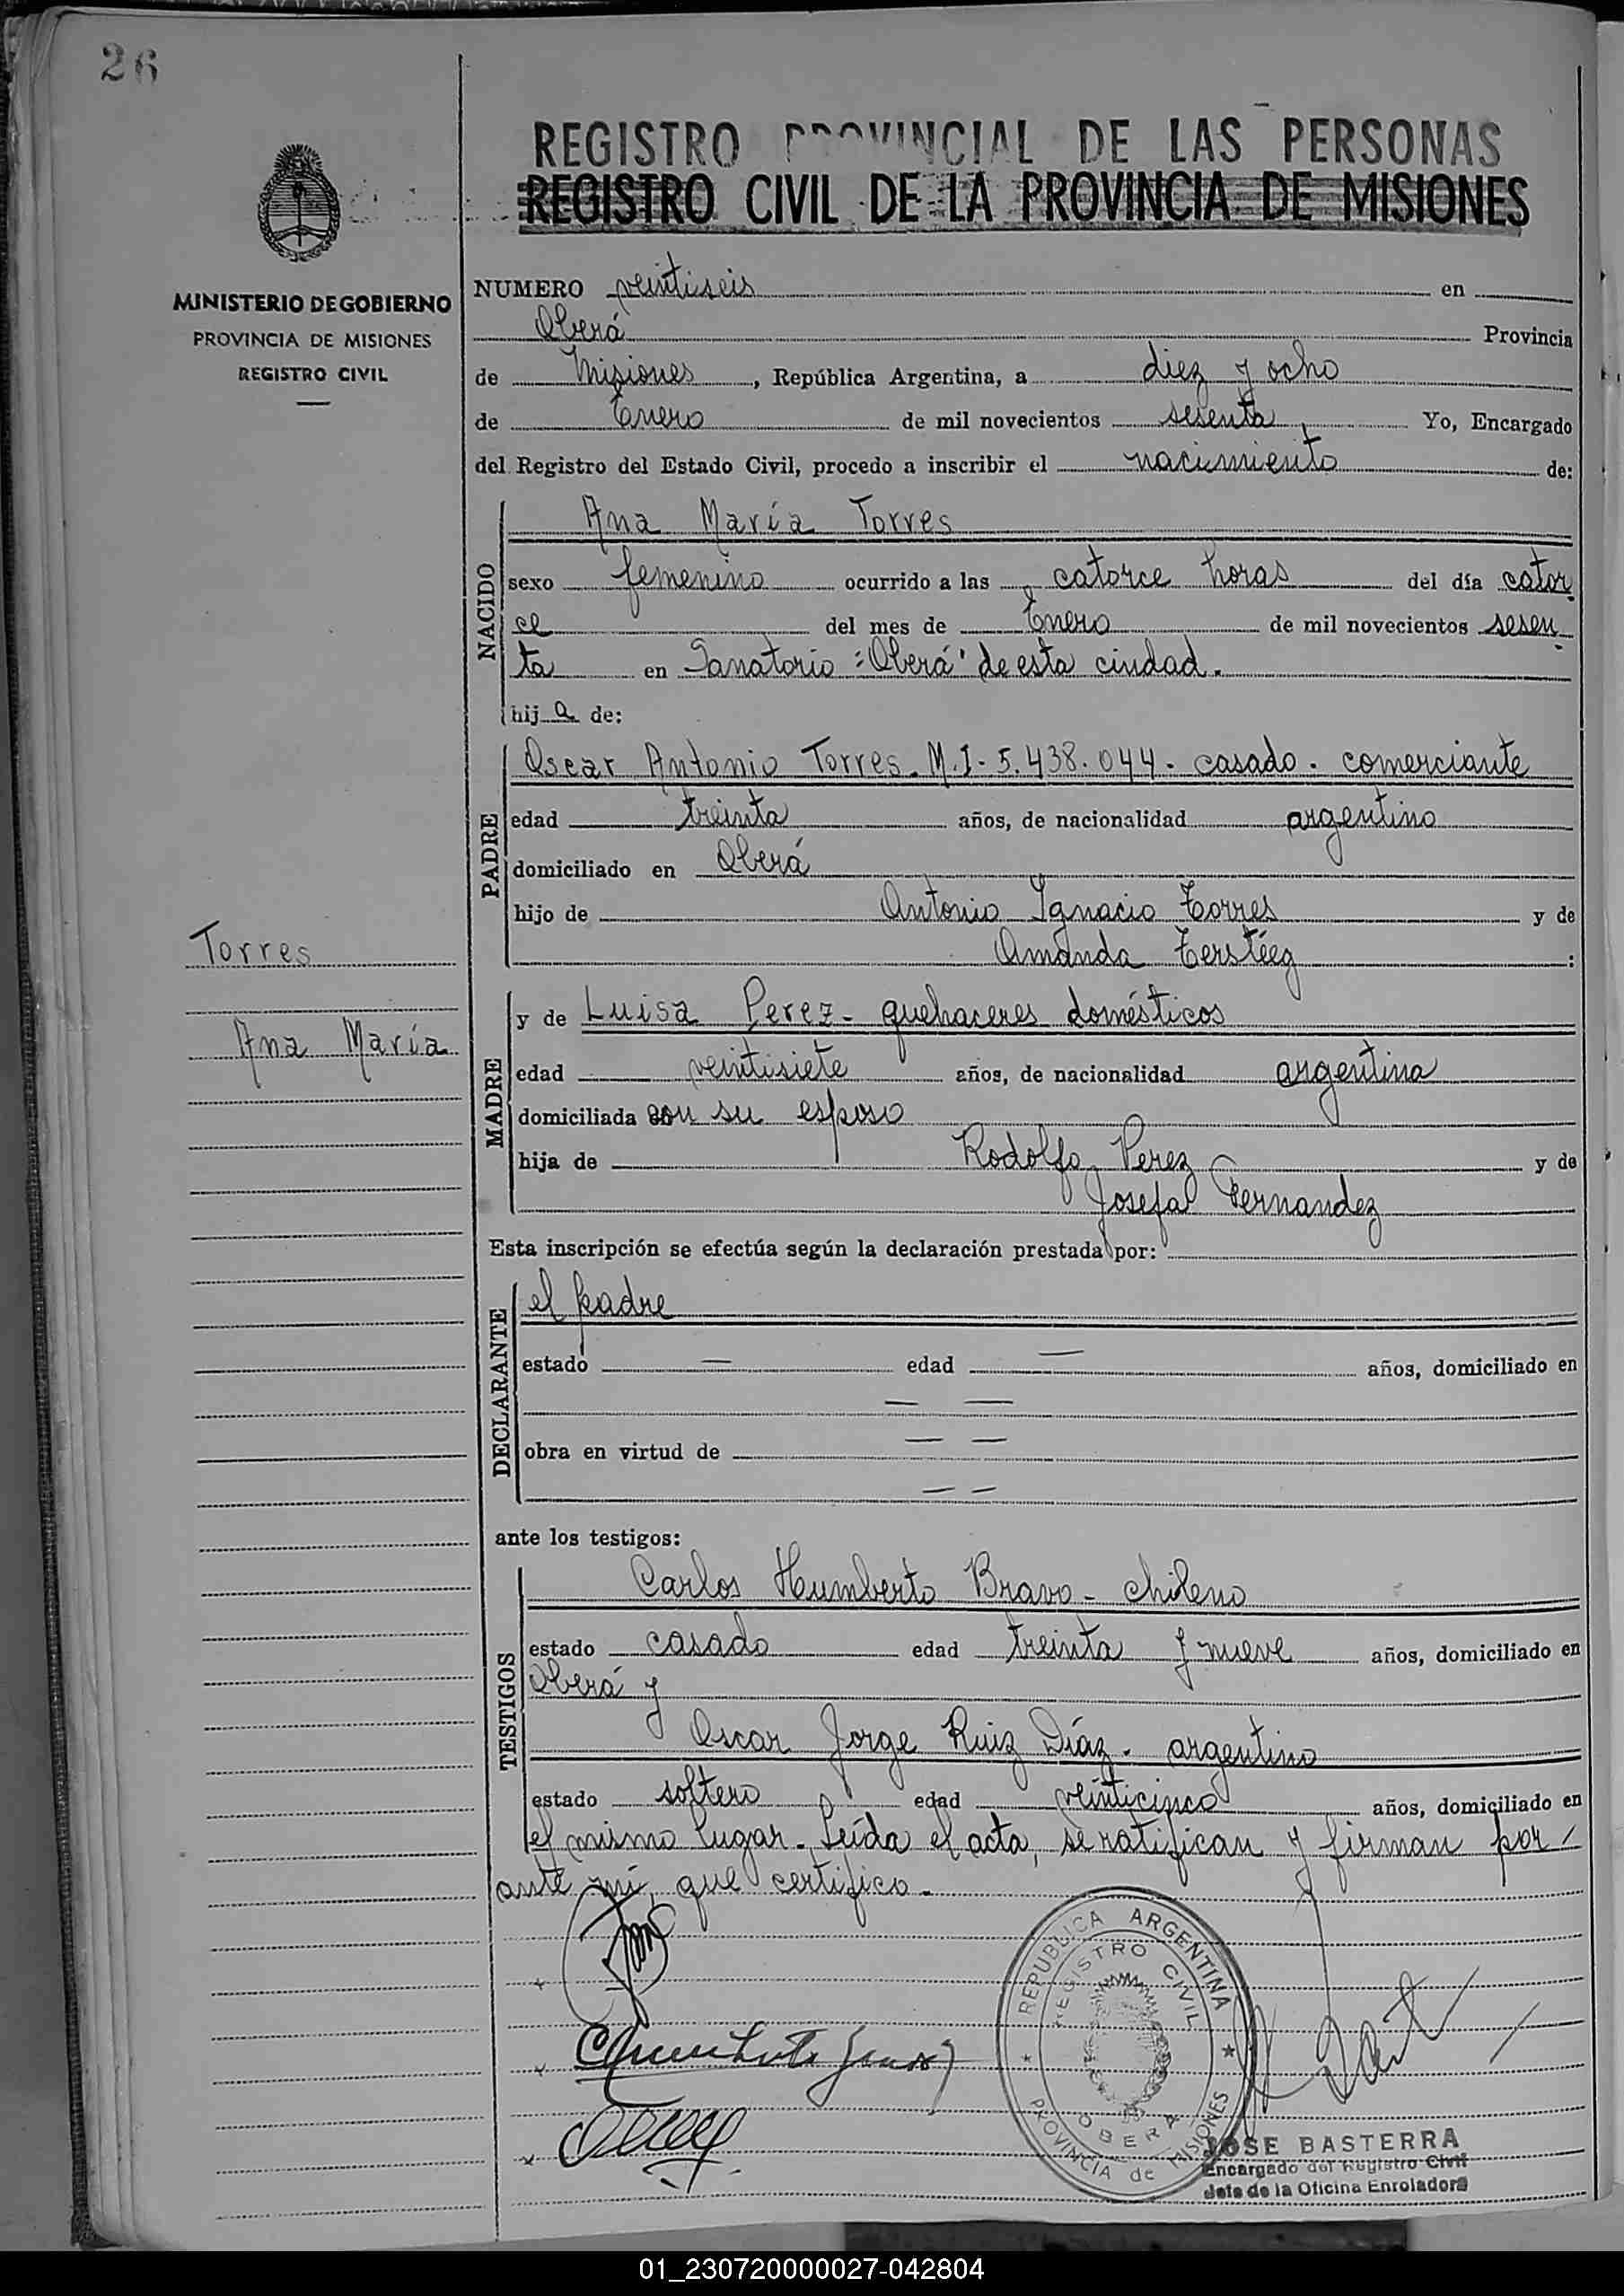 26
REGISTRO PROVINCIAL DE LAS PERSONAS
REGISTRO CIVIL DE LA PROVINCIA DE MISIONES
MINISTERIO DE GOBIERNO
PROVINCIA DE MISIONES
REGISTRO CIVIL
NUMERO veintiseis en
Oberá Provincia
de Misiones, República Argentina, a diez y ocho
de Enero de mil novecientos sesenta, Yo, Encargado
del Registro del Estado Civil, procedo a inscribir el nacimiento de:
NACIDO
Ana María Torres
sexo femenino ocurrido a las catorce horas del día cator
ce del mes de Enero de mil novecientos sesen
ta en Sanatorio "Oberá" de esta ciudad.
hij a de:
PADRE
Oscar Antonio Torres. M.I. 5.438.044. casado. comerciante
edad treinta años, de nacionalidad argentino
domiciliado en Oberá
hijo de Antonio Ignacio Torres y de
Amanda Tersteeg :
Torres
Ana María
MADRE
y de Luisa Perez - quehaceres domésticos
edad veintisiete años, de nacionalidad argentina
domiciliada con su esposo
hija de Rodolfo Perez y de
Josefa Fernandez
Esta inscripción se efectúa según la declaración prestada por:
DECLARANTE
el padre
estado — edad — años, domiciliado en
— —
obra en virtud de — —
— —
ante los testigos:
TESTIGOS
Carlos Humberto Bravo - chileno
estado casado edad treinta y nueve años, domiciliado en
Oberá y
Oscar Jorge Ruiz Díaz. argentino
estado soltero edad veinticinco años, domiciliado en
el mismo lugar. Leída el acta, se ratifican y firman por
ante mí, que certifico.
REPUBLICA ARGENTINA
REGISTRO CIVIL
OBERA
PROVINCIA de MISIONES
JOSE BASTERRA
Encargado del Registro Civil
Jefe de la Oficina Enroladora
01_230720000027-042804